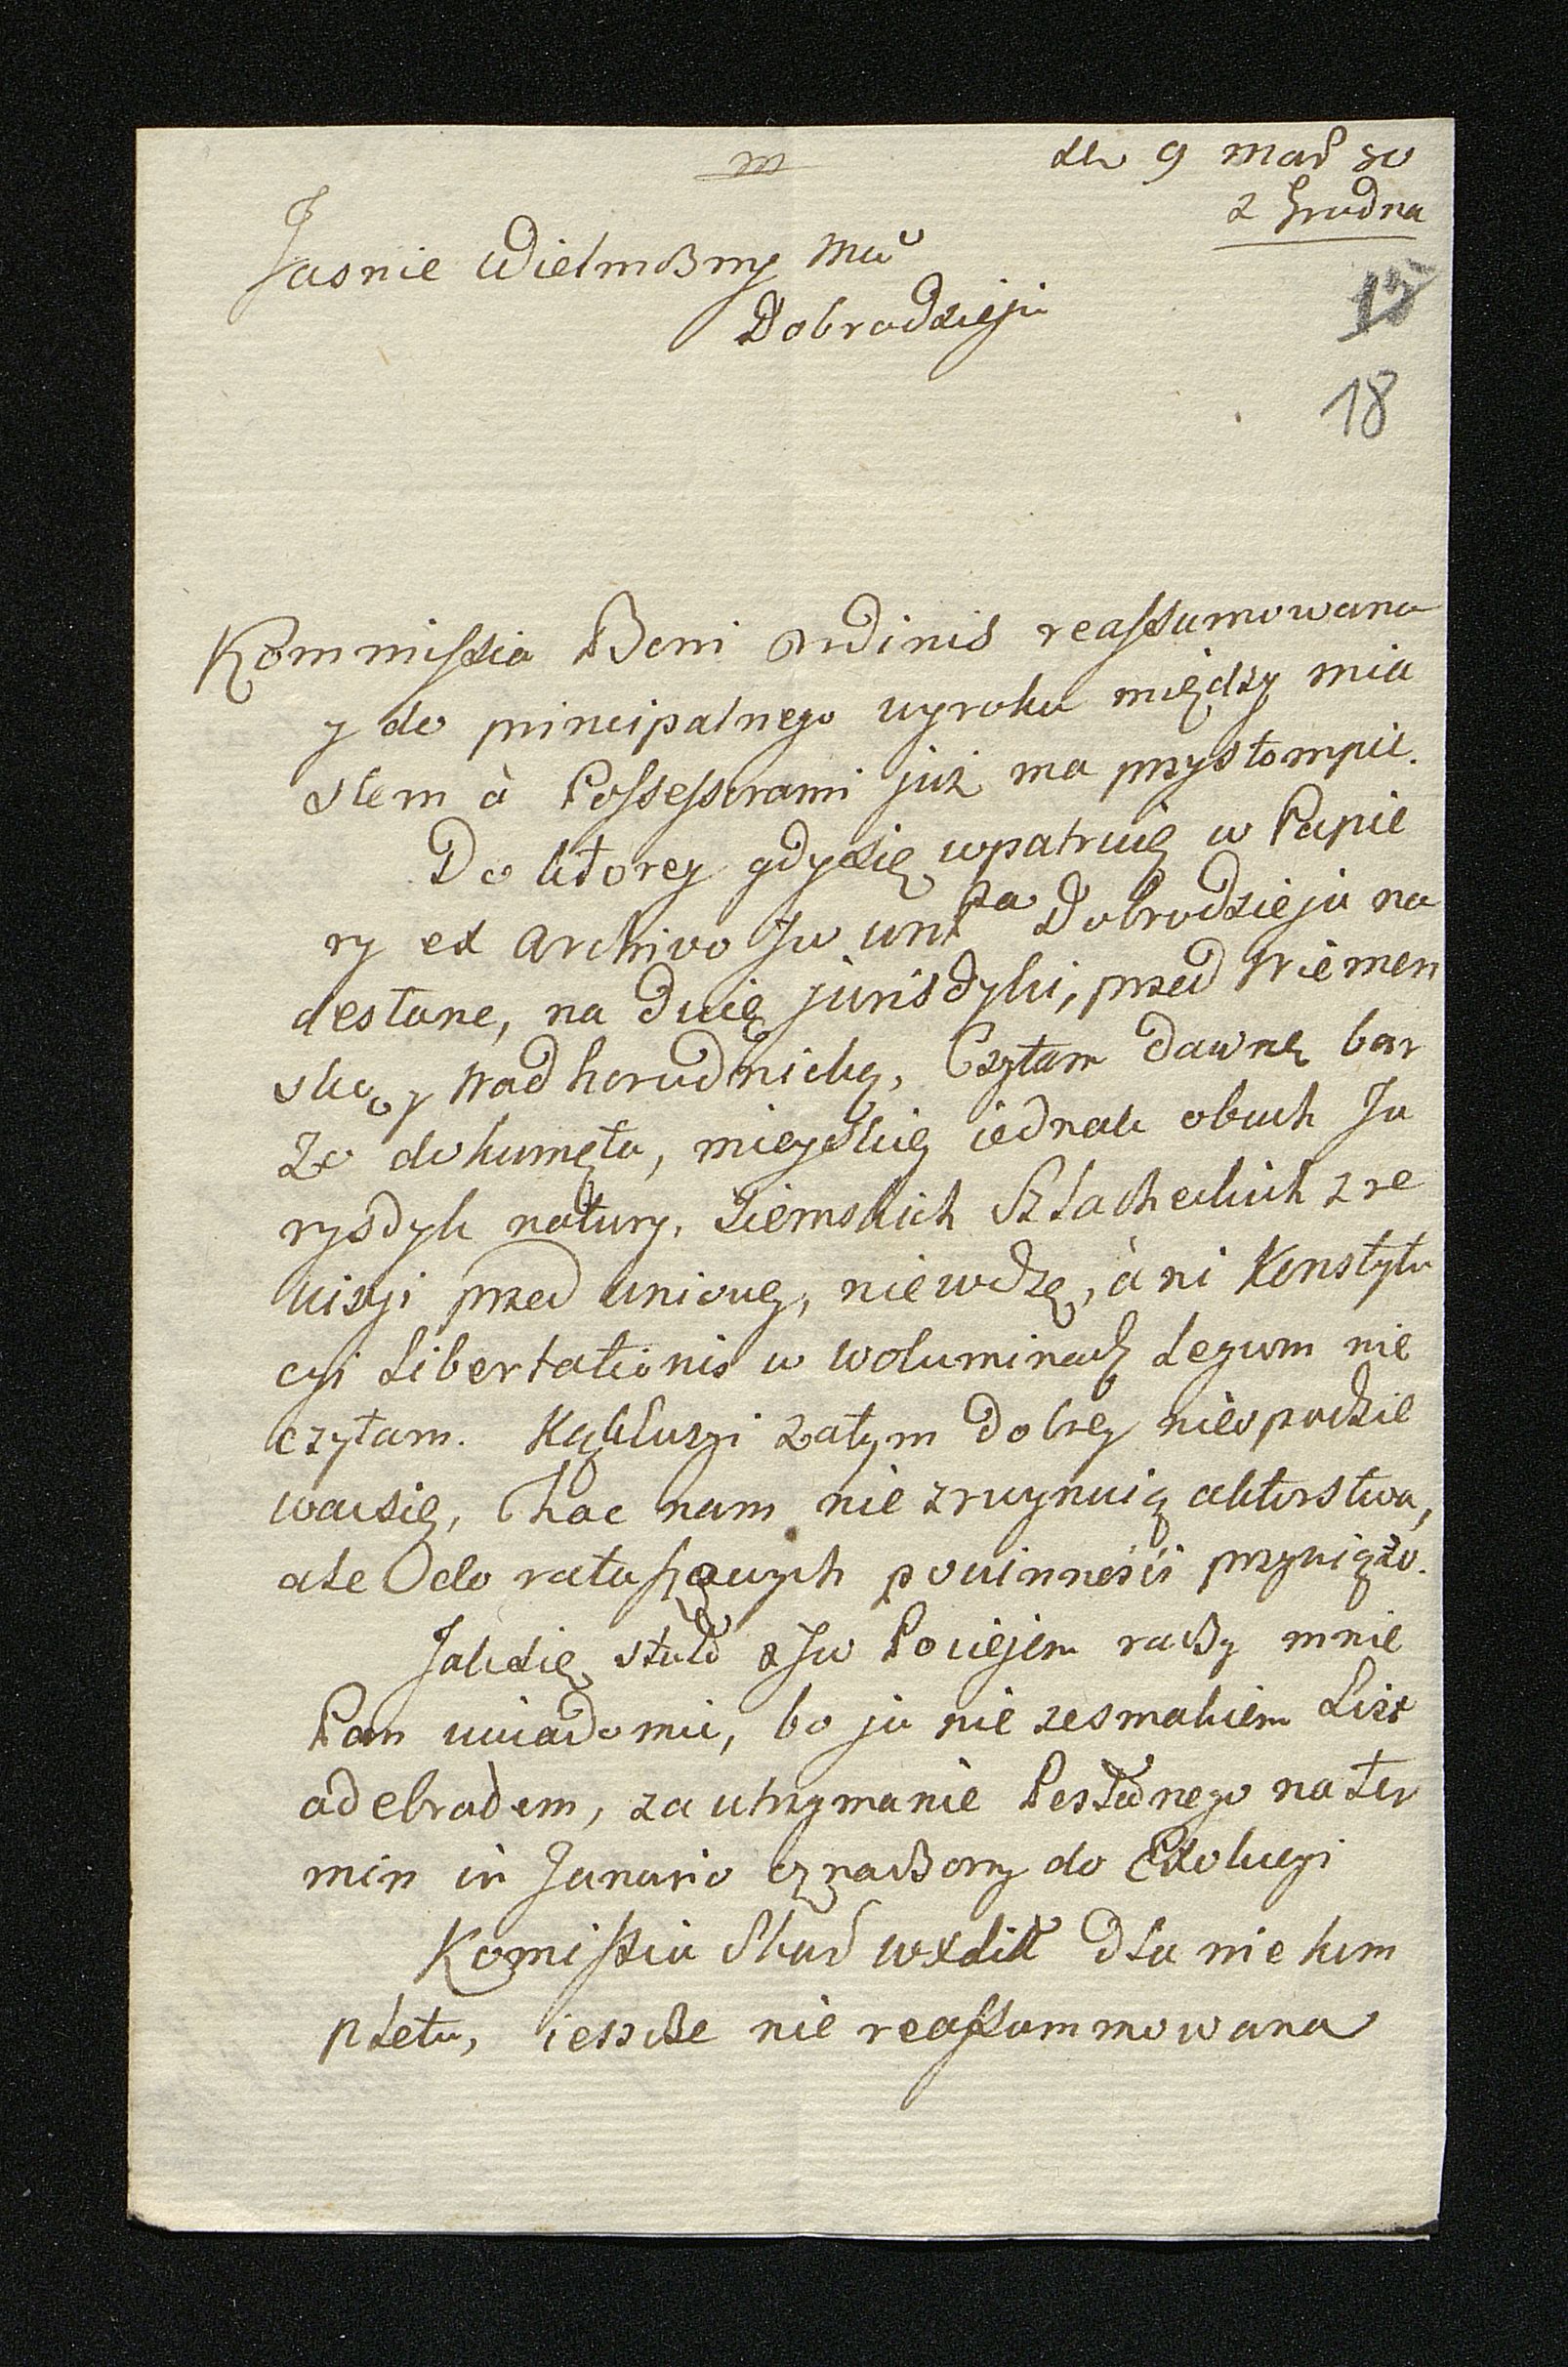 m
9 Mar
z Grodna
Jasnie Wielmożny Mci
Dobrodzieju
18
Kommissia Boni Ordinis reassumowana
y do principalnego wyroku między mia
stem à Possessorami już ma przystompić.
Do ktorey gdysię wpatruię w Papie
ry ex Archivo Jw Dobrodzieja na
destane, na dwie jurisdyki, przed Niemen
ską y Nadhorodnicką, Czytam dawne bar
zo dokumęta, mieyskię iednak obuch Ju
rysdyk natury. Ziemskich Szlacheckich z re
wizyi przed unioug, niewdzę, àni Konstytu
cyi Libertationis w woluminach Legum nie
czytam. Kąkluzyi zatym dobrey niespodzie
waćsię, Choc nam nie zruynuią aktorstwa,
ale do ratuszowych powinności przywiążo.
Jaksię stało z Jw Pociejem raczy mnie
Pan uwiadomić, bo ja nie zesmakiem List
adebrałem, za utrzymanie Posłednego na ter
min in Janario oznaczony do Exolucyi
Komissia Skar wxlitt dla nie kom
pletu, ieszcze nie reassummowana